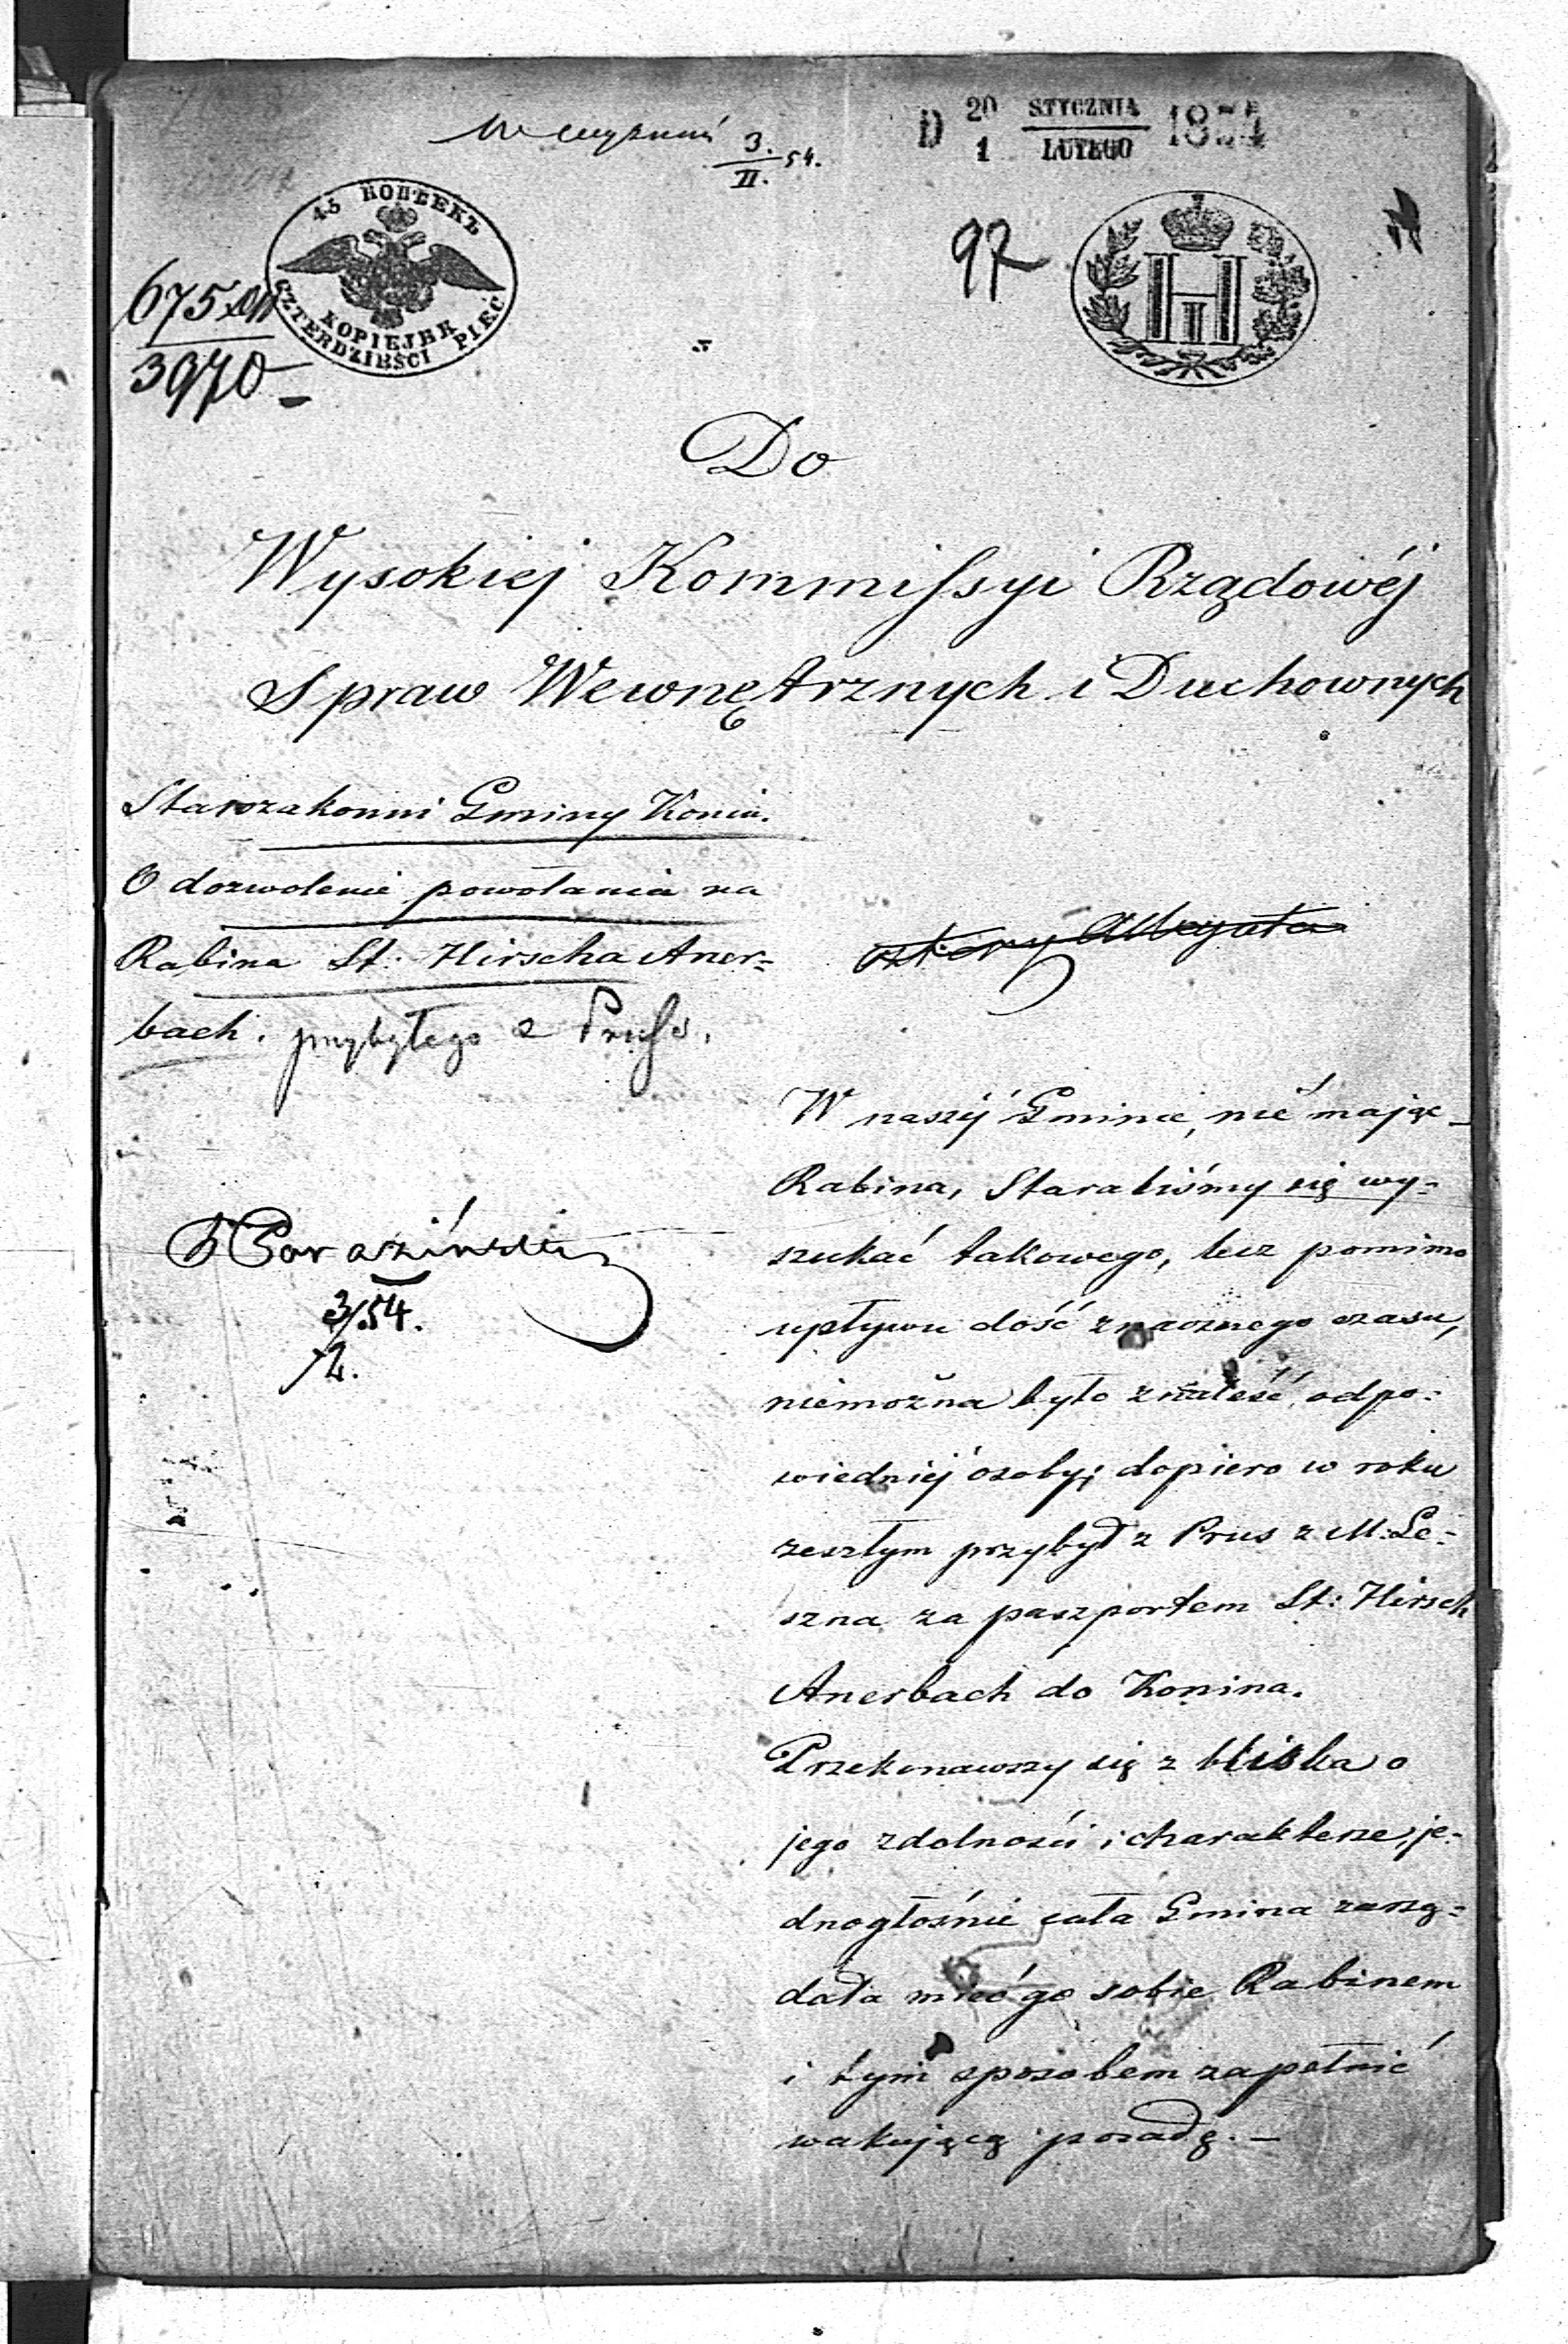 3./II. 54.
D 20/1 STYCZNIA/LUTEGO 1854
45 КОПѢЕКЪ
KOPIEJEK
CZTERDZIEŚCI PIĘĆ
97
H
675
3970
Do
Wysokiej Kommissyi Rządowéj
Spraw Wewnętrznych i Duchownych
Starozakonni Gminy Konin.
O dozwolenie powołania na
Rabina St: Hirscha Auer=
bach. przybyłego z Pruss.
3/54.
/2.
W naszéj Gminie, nie mając
Rabina, Staraliśmy się wy=
szukać takowego, lecz pomimo
upływu dość znacznego czasu,
niemożna było znaleść odpo=
wiedniéj osoby; dopiero w roku
zeszłym przybył z Prus z M: Le=
szna za paszportem St: Hirsch
Auerbach do Konina.
Przekonawszy się z bliska o
jego zdolności i charakterze, je=
dnogłośnie cała Gmina zarzą=
dała mieć go sobie Rabinem
i tym sposobem zapełnić
wakującą posadę. —